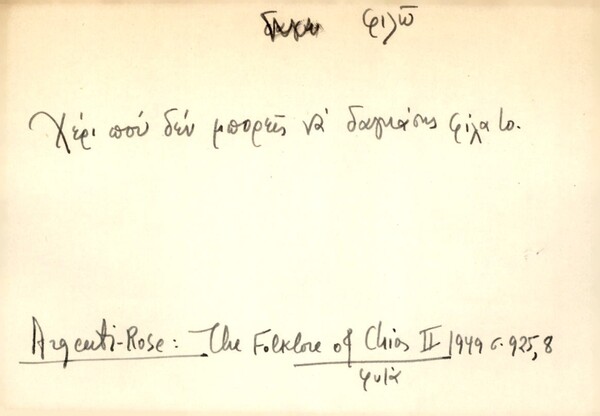 φιλῶ
Χέρι πού δέν μπορεῖς νά δαγκάσης φίλα το.
Argenti-Rose: The Folklore of Chios II 1949 σ. 925, 8